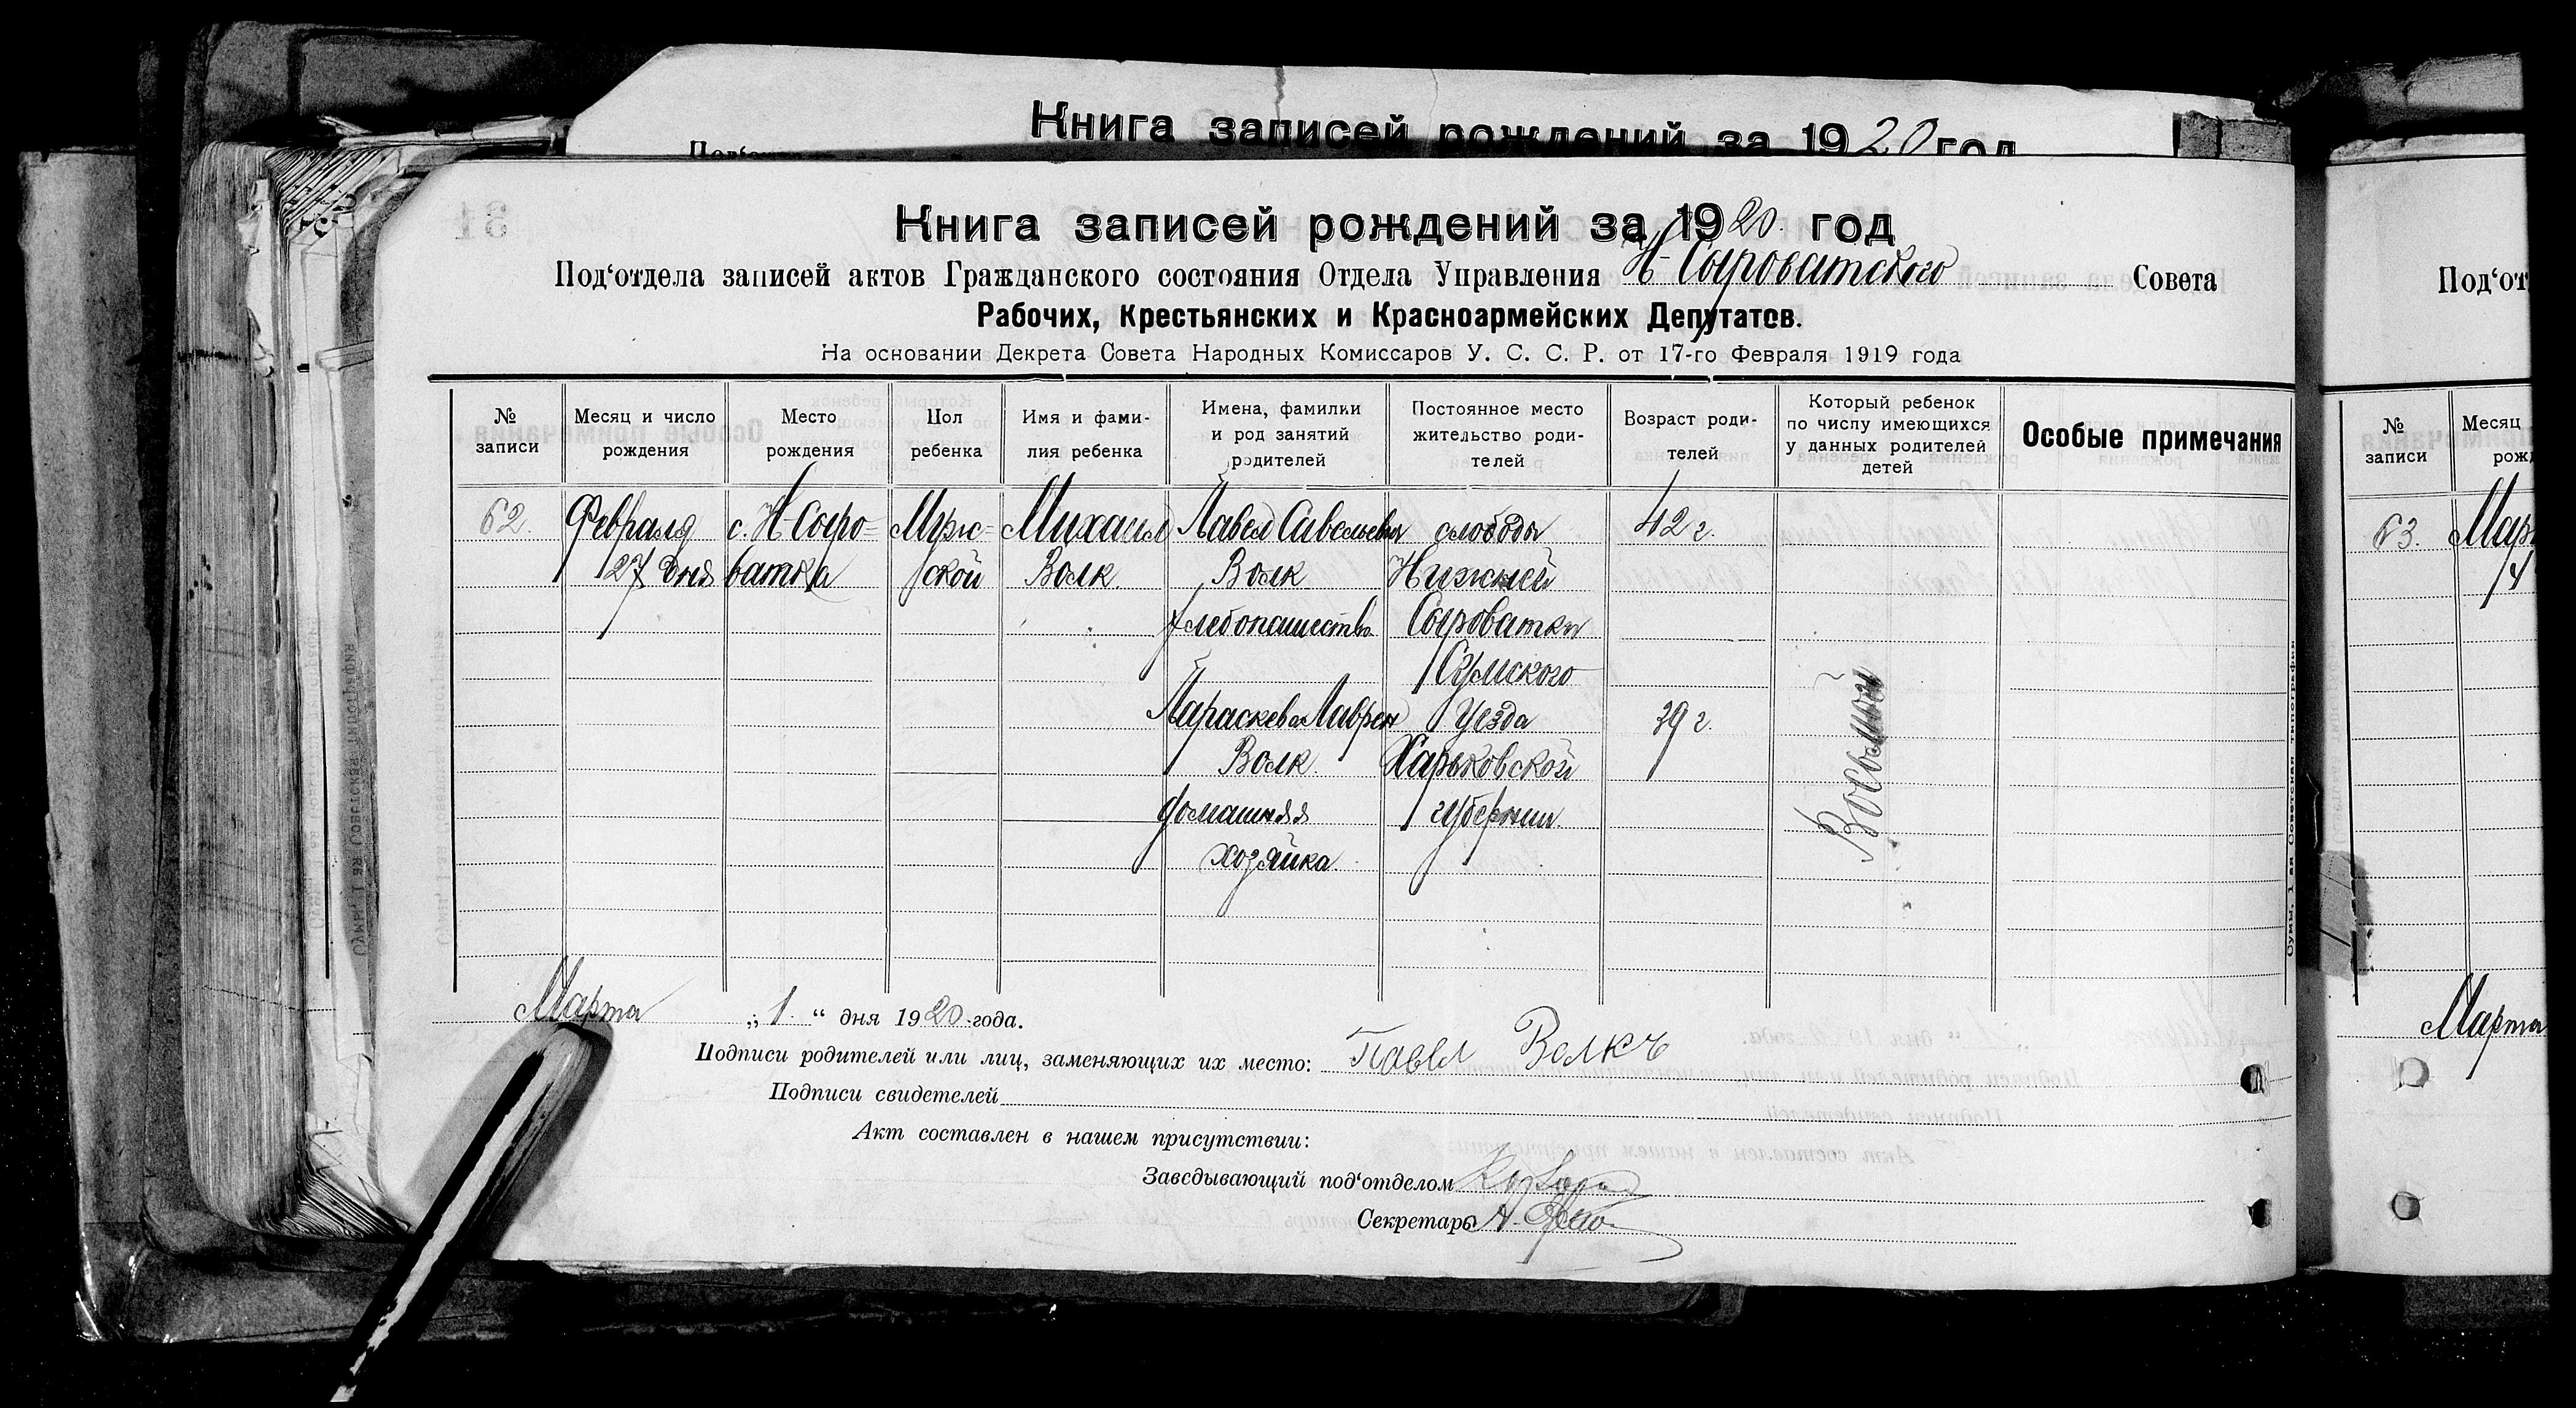 Книга записей рождений за 1920 год
Книга записей рождений за 1920. год
Под‘отдела записей актов Гражданского состояния Отдела Управления Н-Сыроватского Совета
Рабочих, Крестьянских и Красноармейских Депутатов.
На основании Декрета Совета Народных Комиссаров У. С. С. Р. от 17-го Февраля 1919 года
№ записи
Месяц и число рождения
Место рождения
Пол ребенка
Имя и фами-
лия ребенка
Имена, фамилии
и род занятий
родителей
Постоянное место
жительство роди-
телей
Возраст роди-
телей
Который ребенок
по числу имеющихся
у данных родителей
детей
Особые примечания
62. Февраля с. Н-Сыро= Муж= Михаил Павел Савельевич слободы 42 г.
27 дня ватка ской Волк Волк Нижней
хлебопашество Сыроватки
Сумского
Параскева Лаврен Уезда 39 г.
Волк Харьковской
домашняя губернии.
хозяйка.
Восьмой
Марта „ 1. “ дня 1920 года.
Подписи родителей или лиц, заменяющих их место: Павел Волкъ
Подписи свидетелей
Акт составлен в нашем присутствии:
Заведывающий под‘отделом
Секретарь А.
Сумы, 1 ая Советская типография
Под‘от
№ записи
Месяц
рожд
63. Мар
14
Марта
31